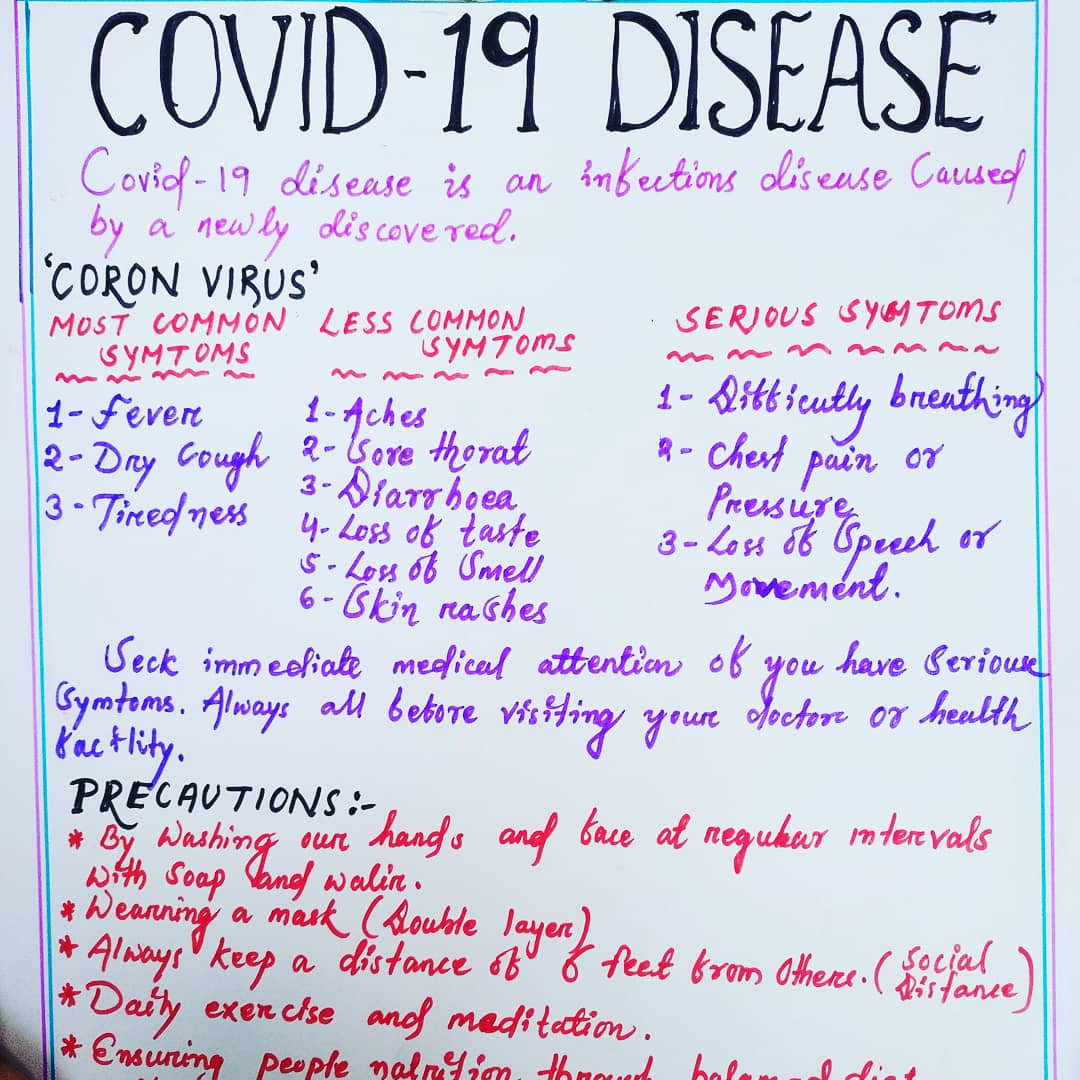 COVID-19 DISEASE
Covid-19 disease is an infections disease Caused
by a newly discovered.
'CORON VIRUS'
MOST COMMON
SYMTOMS
1- Fever
2- Dry Cough
3- Tiredness
LESS COMMON
SYMTOMS
1- Aches
2- Sore thorat
3- Diarrhoea
4- Loss of taste
5- Loss of Smell
6- Skin rashes
SERIOUS SYMTOMS
1- Difficutly breathing
2- Chest pain or
Pressure
3- Loss of Speech or
Movement.
Seck immediate medical attention of you have Serious
Symtoms. Always all before visiting your doctor or health
factlity.
PRECAUTIONS:-
* By Washing our hands and face at regular intervals
with Soap and walir.
* Wearning a mask (Double layer)
* Always keep a distance of 6 feet from others. (Social
Distance)
* Daily exercise and meditation.
* Ensuring people natrition through balanced diet